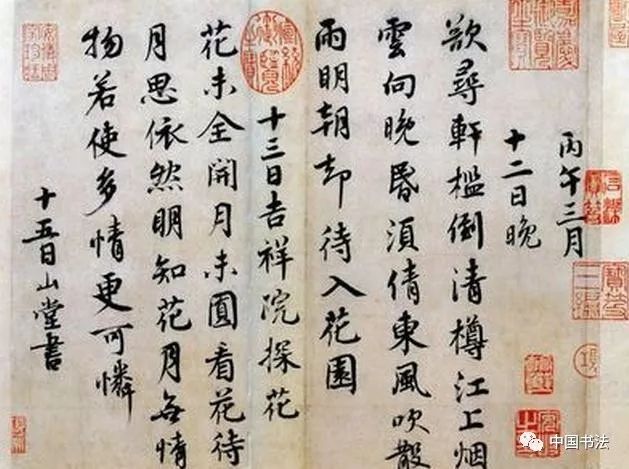 丙午三月
十二日晚
欲尋軒檻倒清樽江上烟
雲向晚昏須倩東風吹散
雨明朝却待入花園
十三日吉祥院探花
花未全開月未圓看花待
月思依然明知花月無情
物若使多情更可憐
十五日山堂書
中国书法